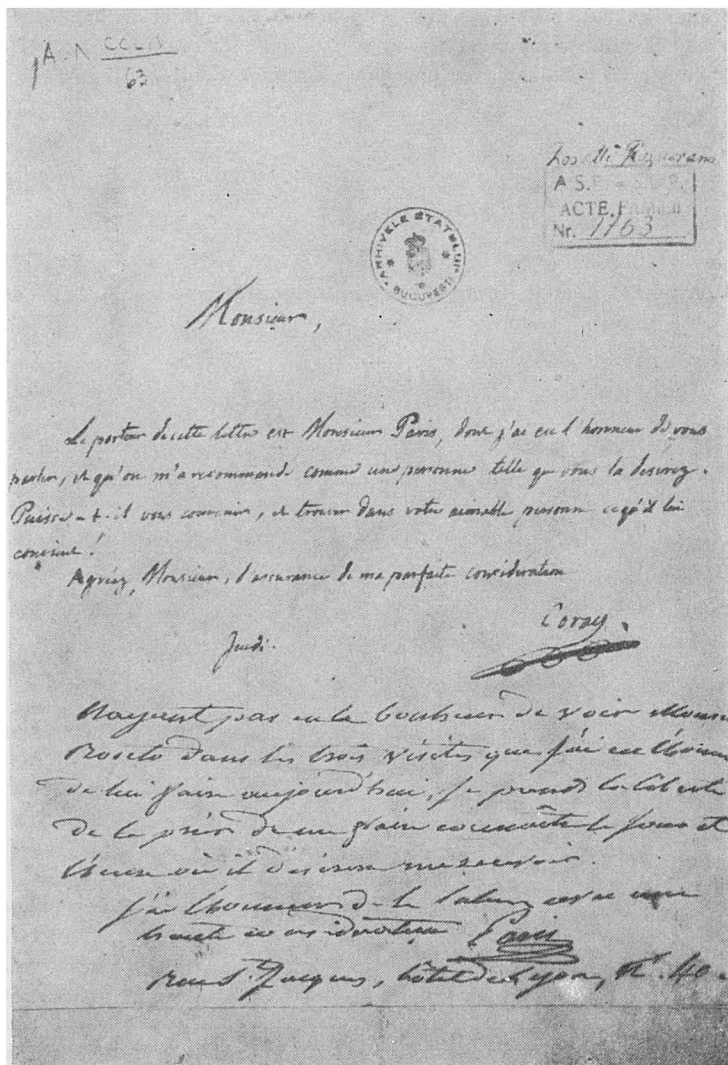 A. N
63
A S.
ACTE FAMILII
Nr. 1163
ARHIVELE STATULUI
BUCUREȘTI
Monsieur,
Le porteur de cette lettre est Monsieur Paris, dont j'ai eu l'honneur de vous
parler, et qu'on m'a recommandé comme une personne telle que vous la desirez.
Puisse-t-il vous convenir, et trouver dans votre aimable personne ce qu'il lui
convient!
Agréez, Monsieur, l'assurance de ma parfaite consideration
Coray.
Jeudi.
N'ayant pas eu le bonheur de voir Monsr
Roseto dans les trois visites que j'ai eu l'honn
de lui faire aujourd'hui, je prends la liberté
de le prier de me faire connoître le jour et
l'heure où il desire me recevoir.
J'ai l'honneur de le saluer avec une
haute consideration Paris
rue St. Jacques, hôtel de Lyon, No. 40.